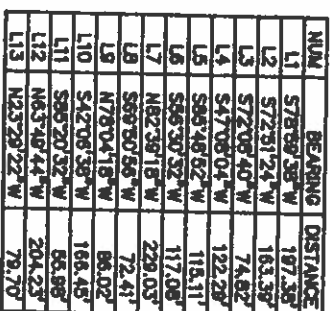 NUM BEARING DISTANCE
L1 S78°59'38"W 197.36'
L2 S72°51'24"W 163.39'
L3 S72°08'40"W 74.82'
L4 S47°06'04"W 122.29'
L5 S65°46'52"W 115.11'
L6 S66°30'32"W 117.08'
L7 N82°39'18"W 229.03'
L8 S69°50'56"W 72.41'
L9 N78°04'18"W 86.02'
L10 S42°06'38"W 166.45'
L11 S85°20'32"W 55.98'
L12 N63°49'44"W 204.23'
L13 N23°29'22"W 79.70'